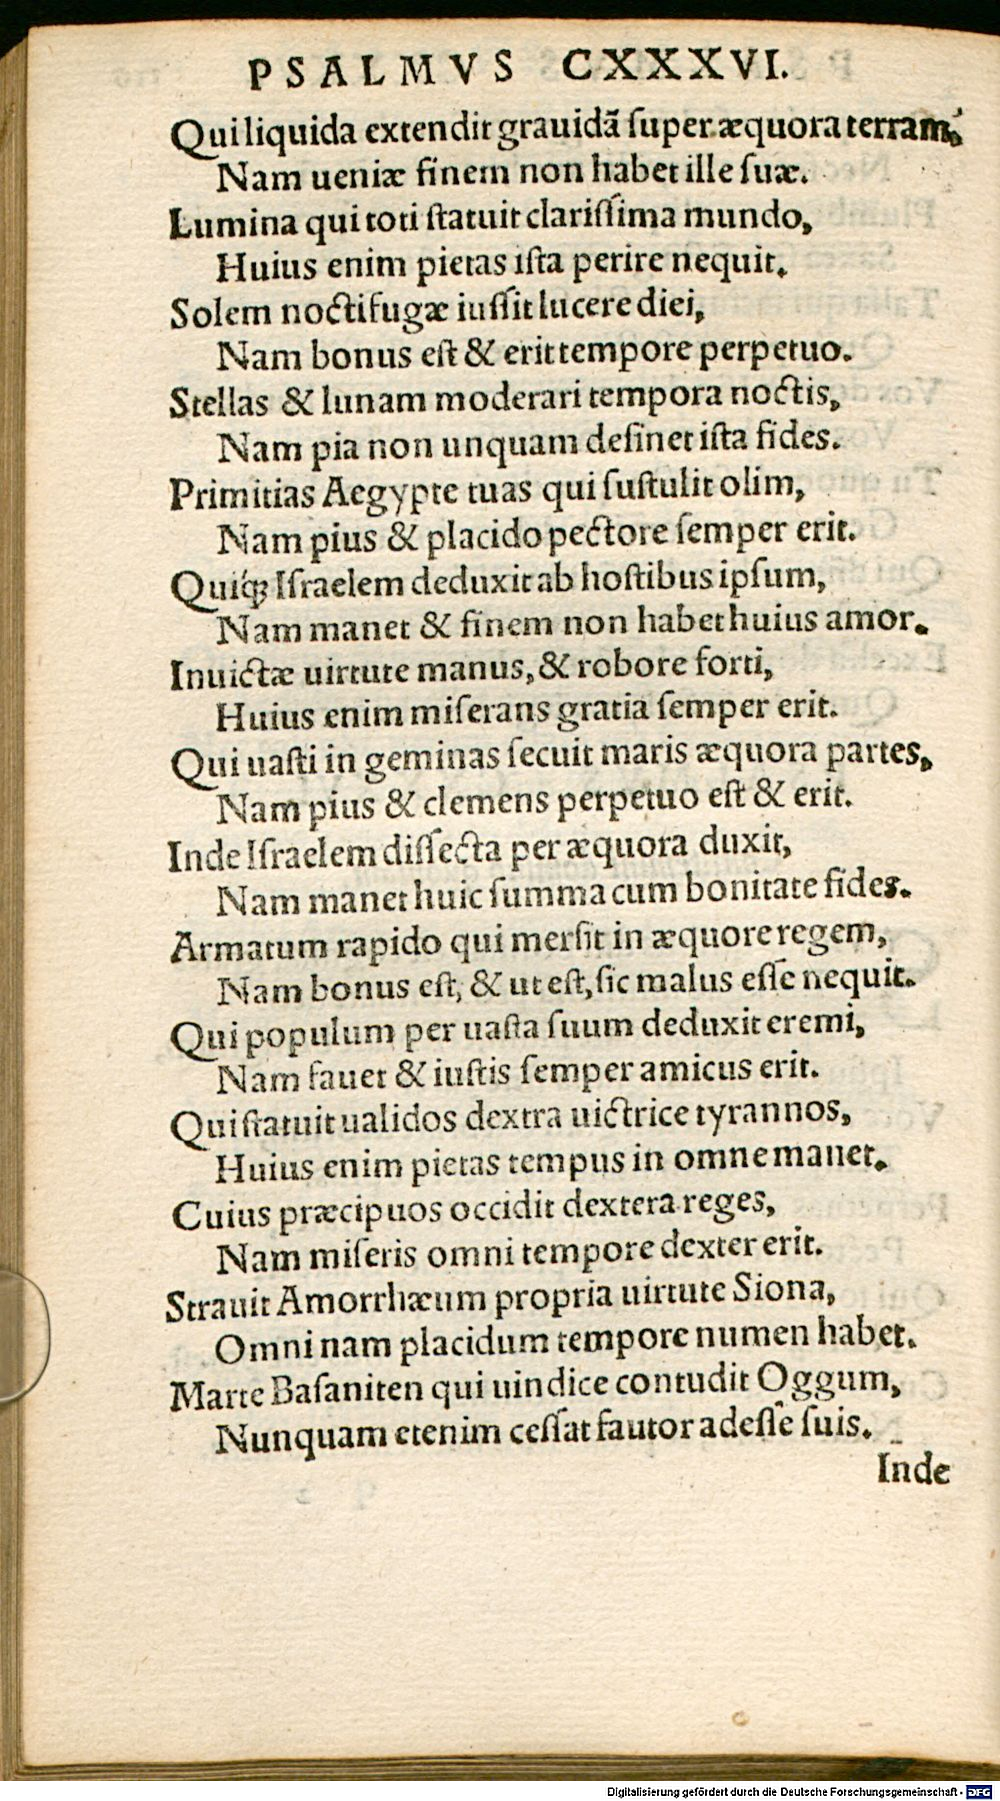 PSALMVS CXXXVI.
Qui liquida extendit grauidã super æquora terram,
Nam ueniæ finem non habet ille suæ.
Lumina qui toti statuit clarissima mundo,
Huius enim pietas ista perire nequit.
Solem noctifugæ iussit lucere diei,
Nam bonus est & erit tempore perpetuo.
Stellas & lunam moderari tempora noctis,
Nam pia non unquam desinet ista fides.
Primitias Aegypte tuas qui sustulit olim,
Nam pius & placido pectore semper erit.
Quiq́ꝫ Israelem deduxit ab hostibus ipsum,
Nam manet & finem non habet huius amor.
Inuictæ uirtute manus, & robore forti,
Huius enim miserans gratia semper erit.
Qui uasti in geminas secuit maris æquora partes,
Nam pius & clemens perpetuo est & erit.
Inde Israelem dissecta per æquora duxit,
Nam manet huic summa cum bonitate fides.
Armatum rapido qui mersit in æquore regem,
Nam bonus est, & ut est, sic malus esse nequit.
Qui populum per uasta suum deduxit eremi,
Nam fauet & iustis semper amicus erit.
Qui statuit ualidos dextra uictrice tyrannos,
Huius enim pietas tempus in omne manet.
Cuius præcipuos occidit dextera reges,
Nam miseris omni tempore dexter erit.
Strauit Amorrhæum propria uirtute Siona,
Omni nam placidum tempore numen habet.
Marte Basaniten qui uindice contudit Oggum,
Nunquam etenim cessat fautor adesse suis.
Inde
Digitalisierung gefördert durch die Deutsche Forschungsgemeinschaft - DFG